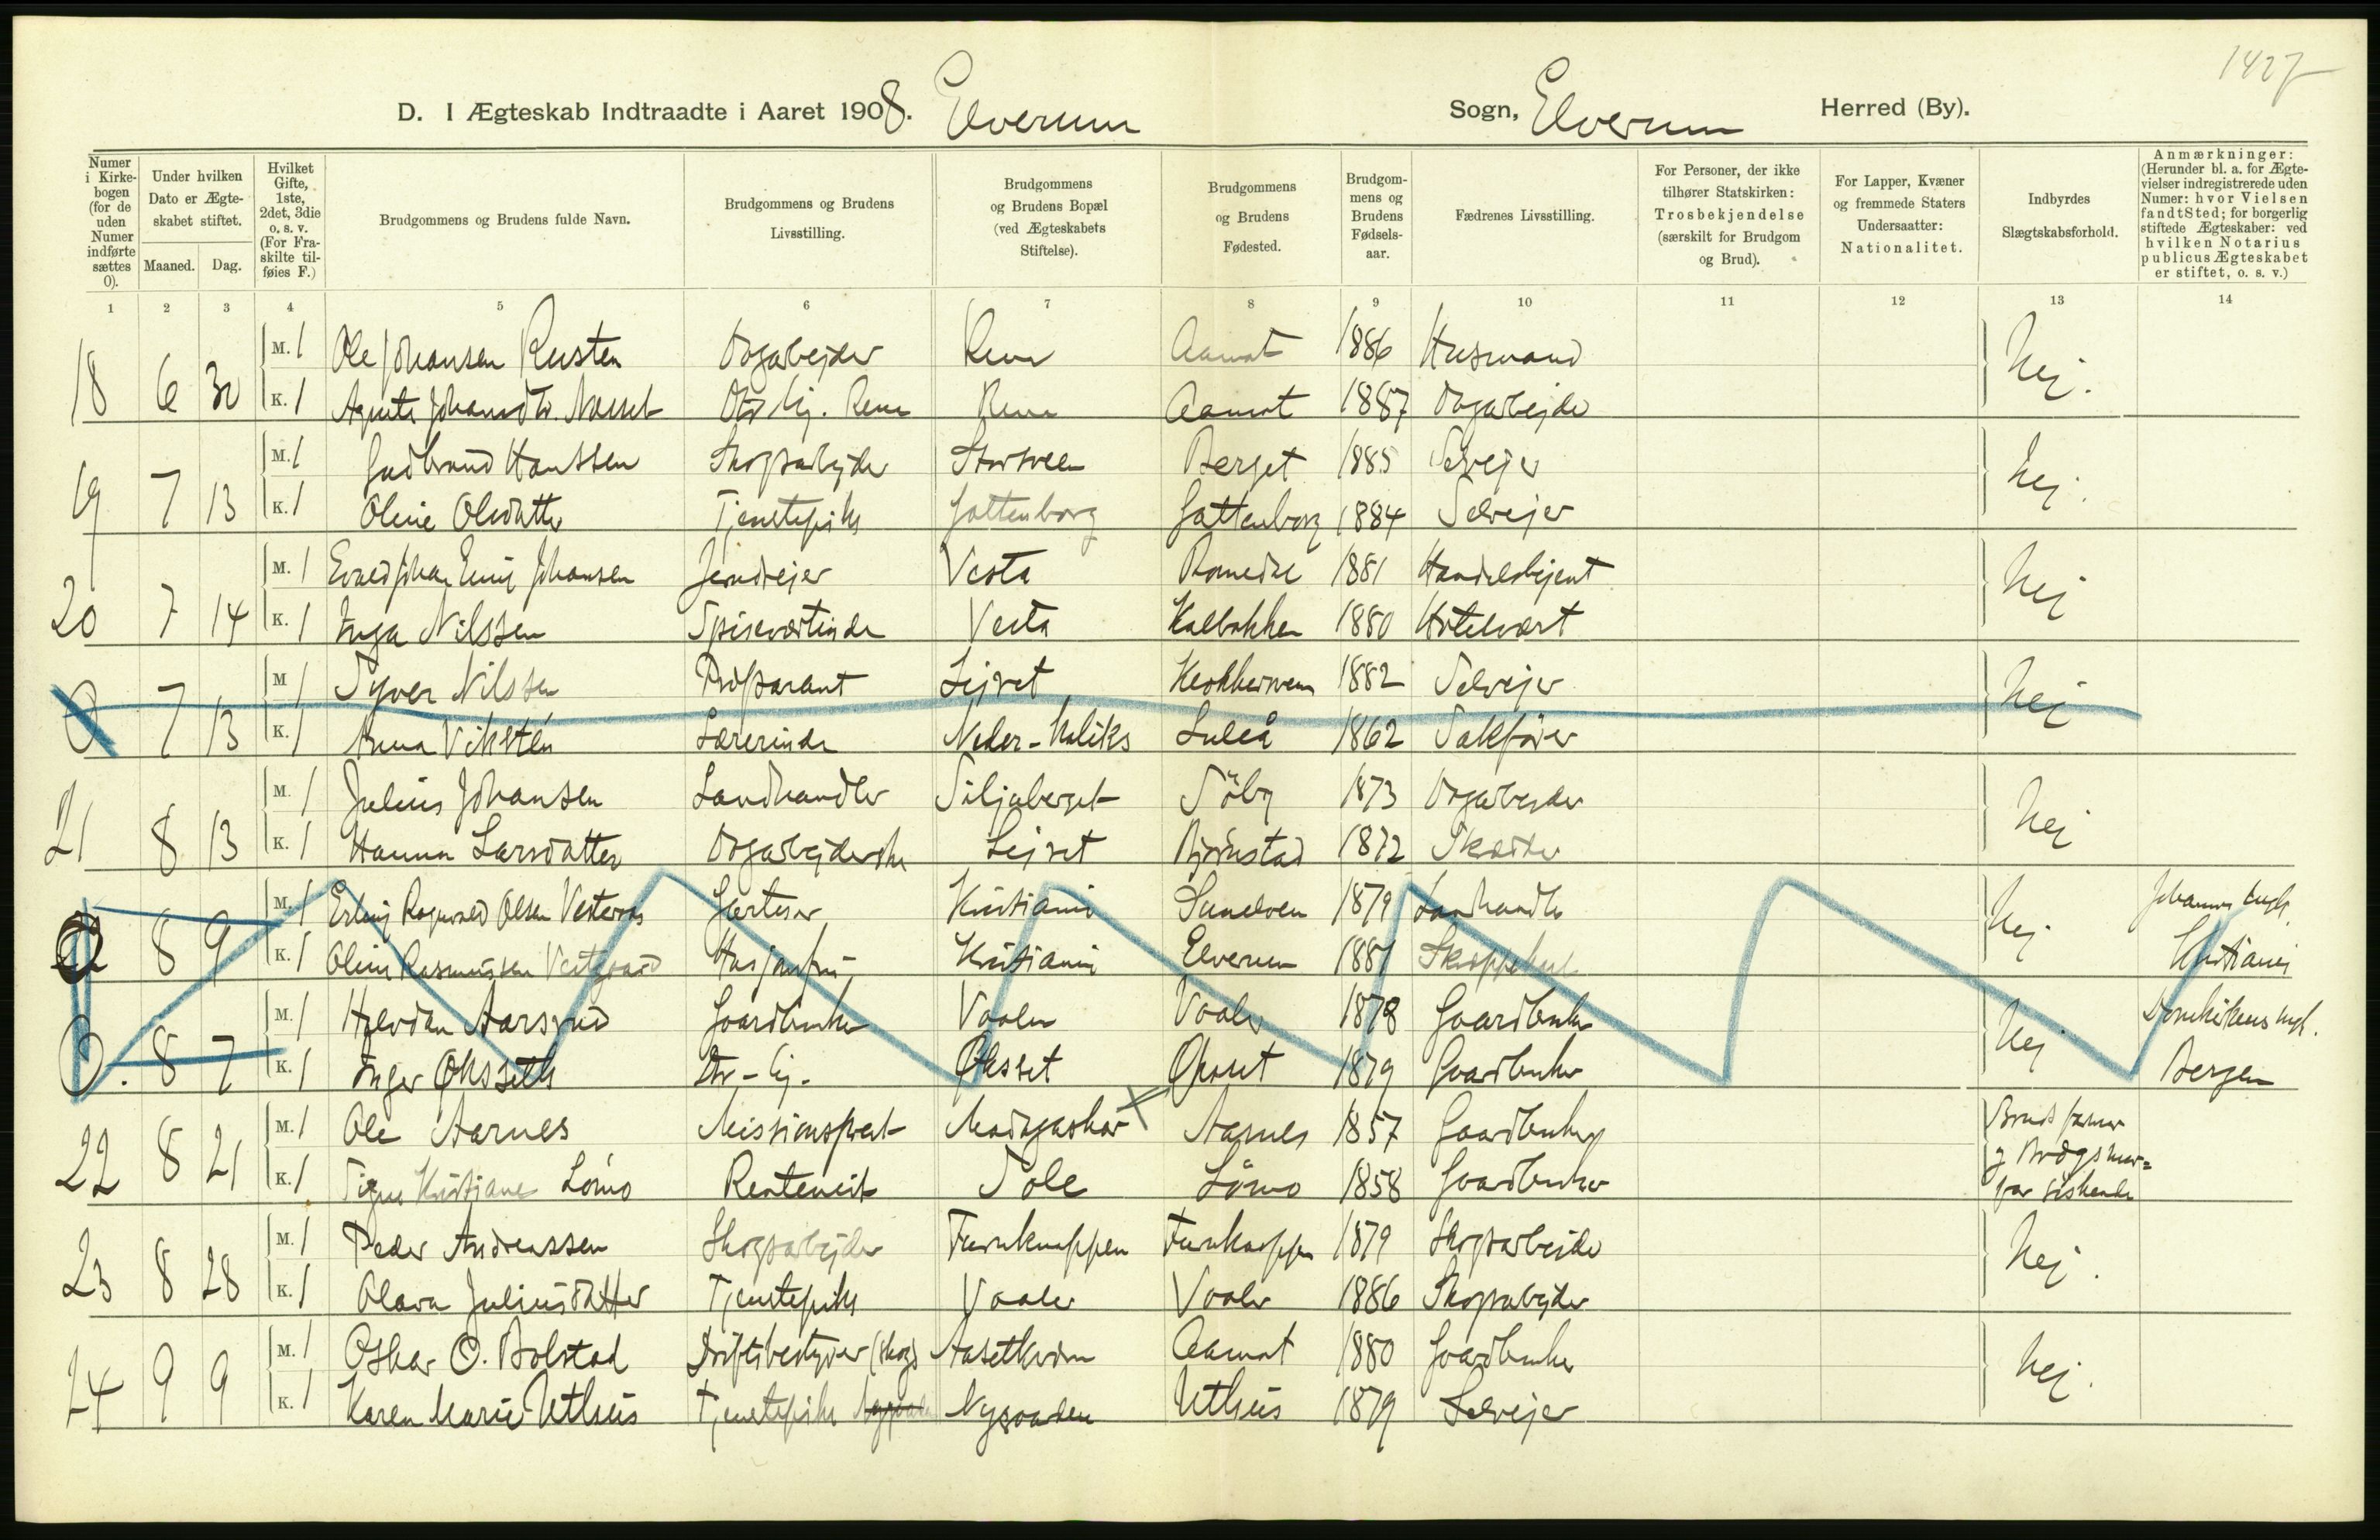 1427
D. I Ægteskab Indtraadte i Aaret 1908. Elverum Sogn, Elverum Herred (By).
Numer i Kirkebogen (for de uden Numer indførte sættes 0).
Under hvilken Dato er Ægteskabet stiftet.
Maaned. Dag.
Hvilket Gifte, 1ste, 2det, 3die o. s. v. (For Fraskilte tilføies F.)
Brudgommens og Brudens fulde Navn.
Brudgommens og Brudens Livsstilling.
Brudgommens og Brudens Bopæl (ved Ægteskabets Stiftelse).
Brudgommens og Brudens Fødested.
Brudgommens og Brudens Fødselsaar.
Fædrenes Livsstilling.
For Personer, der ikke tilhører Statskirken: Trosbekjendelse (særskilt for Brudgom og Brud).
For Lapper, Kvæner og fremmede Staters Undersaatter: Nationalitet.
Indbyrdes Slægtskabsforhold.
Anmærkninger: (Herunder bl. a. for Ægtevielser indregistrerede uden Numer: hvor Vielsen fandt Sted; for borgerlig stiftede Ægteskaber: ved hvilken Notarius publicus Ægteskabet er stiftet, o. s. v.)
1 2 3 4 5 6 7 8 9 10 11 12 13 14
M. 1 Ole Johansen Rusten Dagarbejder Rena Aamot 1886 Husmand
18 6 30 K. 1 Agnete Johansdtr. Næsset Rena Aamot 1887 Dagarbejder Nej.
M. 1 Gudbrand Hanssen Skogsarbejder Storsveen Berget 1885 Selvejer
19 7 13 K. 1 Oline Olsdatter Tjenestepike Gattenborg Gattenborg 1884 Selvejer Nej.
M. 1 Johan Johansen Vesta Romedal 1881 Handelsbetjent
20 7 14 K. 1 Inga Nilssen Spiseværtinde Vesta Kalbakken 1880 Hotelvært Nej
M 1 Syver Nilssen Præparant Lejret 1882 Selvejer
0 7 13 K. 1 Anna Vikstén Lærerinde Neder-Kaliks Luleå 1862 Sakfører Nej
M. 1 Julius Johansen Landhandler Siljuberget Söby 1873 Dagarbejder
21 8 13 K. 1 Hanna Larsdatter Dagarbejderske Lejret Björnstad 1872 Nej
M. 1 Erling Ragnvald Olsen Gartner Kristiania Sunelven 1879 Landhandler Johannes
0 8 9 K. 1 Oline Rasmussen Vestgaard Husjomfru Kristiania Elverum 1881 Nej. Kristiania
M. 1 Halvdan Aarsrud Gaardbruker Vaaler Vaaler 1878 Gaardbruker Domkirkens
0. 8 7 K. 1 Inger Øksseth Øksset Øksset 1879 Gaardbruker Nej Bergen
M. 1 Ole Aarnes Missionsprest Madagaskar Aarnes 1857 Gaardbruker
22 8 21 K. 1 Signe Kristiane Lömo Sole Lömo 1858 Gaardbruker søskende
M. 1 Peder Andreassen Skogsarbejder Furuknappen Furuknappen 1879 Skogsarbejder
23 8 28 K. 1 Olava Juliusdatter Tjenestepike Vaaler Vaaler 1886 Skogsarbejder Nej.
M. 1 Oskar O. Bolstad Driftsbestyrer (skog) Aamot 1880 Gaardbruker
24 9 9 K. 1 Karen Marie Uthus Tjenestepike Nygaarden Uthus 1879 Selvejer Nej.